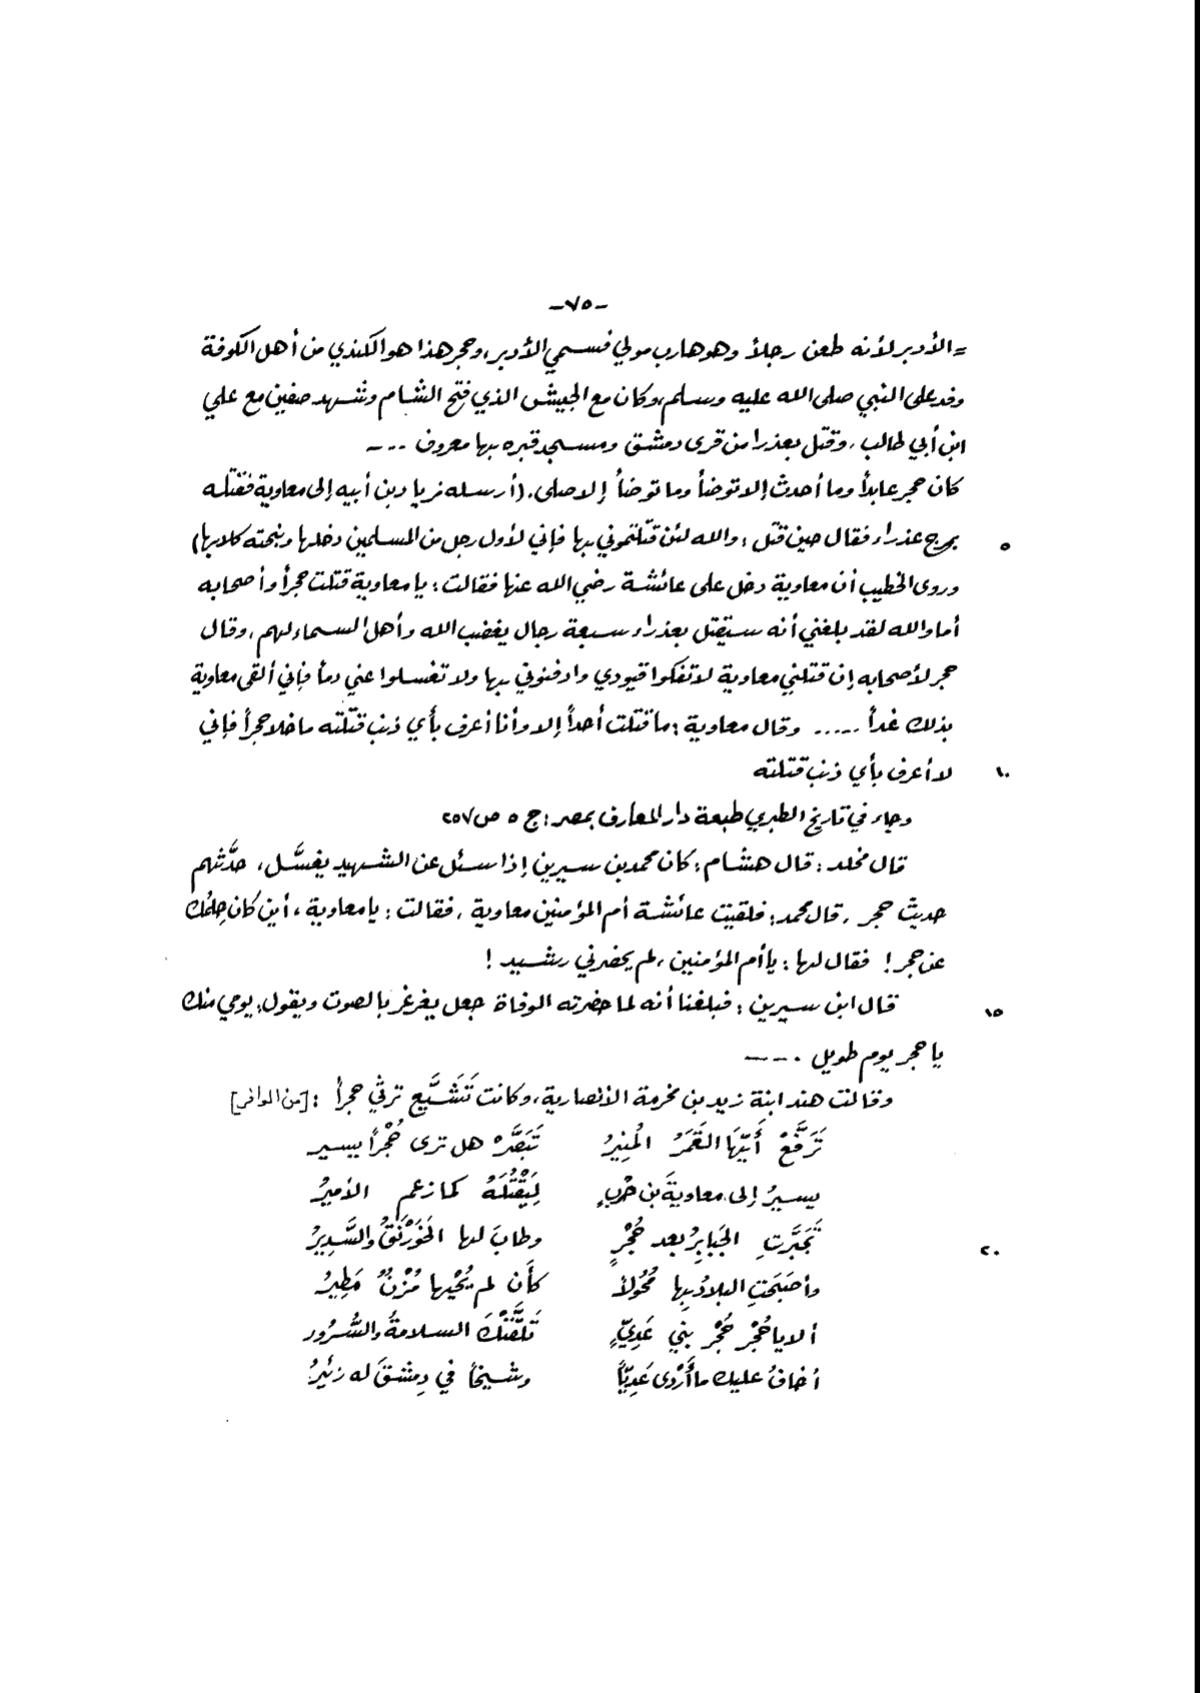 -٧٥-
= الأدبر لأنه طعن رجلاً وهو هارب مولي فسمي الأدبر، وحجر هذا هو الكندي من أهل الكوفة
وفد على النبي صلى الله عليه وسلم، وكان مع الجيش الذي فتح الشام وشهد صفين مع علي
ابن أبي طالب، وقتل بعذرا من قرى دمشق ومسجد قبره بها معروف ---
كان حجر عابداً وما أحدث إلا توضأ وما توضأ إلا صلى، (أرسله زياد بن أبيه إلى معاوية فقتله
٥ بمرج عذراء فقال حين قتل: والله لئن قتلتموني بها فإني لأول رجل من المسلمين دخلها ونبحته كلابها)
وروى الخطيب أن معاوية دخل على عائشة رضي الله عنها فقالت: يا معاوية قتلت حجراً وأصحابه
أما والله لقد بلغني أنه سيقتل بعذراء سبعة رجال يغضب الله وأهل السماء لهم، وقال
حجر لأصحابه إن قتلني معاوية لا تفكوا قيودي وادفنوني بها ولا تغسلوا عني دماً فإني ألقى معاوية
بذلك غداً ..... وقال معاوية: ما قتلت أحداً إلا وأنا أعرف بأي ذنب قتلته ما خلا حجراً فإني
١٠ لا أعرف بأي ذنب قتلته
وجاء في تاريخ الطبري طبعة دار المعارف بمصر: ج ٥ ص ٢٥٧
قال مخلد: قال هشام: كان محمد بن سيرين إذا سئل عن الشهيد يغسَّل، حدَّثهم
حديث حجر، قال محمد: فلقيت عائشة أم المؤمنين معاوية، فقالت: يا معاوية، أين كان حِلمُك
عن حجر! فقال لها: يا أم المؤمنين، لم يحضرني رشيد!
١٥ قال ابن سيرين: فبلغنا أنه لما حضرته الوفاة جعل يغرغر بالصوت ويقول: يومي منك
يا حجر يوم طويل. ---
وقالت هند ابنة زيد بن مخرمة الأنصارية، وكانت تَشَيَّع ترثي حجراً: [من الوافر]
تَرَفَّعْ أَيّهَا القَمَرُ المُنِيرُ تَبَصَّرْ هل ترى حُجْراً يسير
يسيرُ إلى معاويةَ بن حَرْبٍ لِيَقْتُلَهُ كما زعم الأميرُ
٢٠ تَجَبَّرَتِ الجَبَابِرُ بعد حُجْرٍ وطابَ لها الخَوَرْنَقُ والسَّدِيرُ
وأصبَحَتِ البلادُ بها مُحُولاً كأن لم يُحْيِها مُزْنٌ مَطِيرُ
ألا يا حُجْر حُجْر بني عَدِيٍّ تَلَقَّتْكَ السلامةُ والسُّرُور
أخافُ عليك ما أَرْدى عَدِيّاً وشيخاً في دِمشقَ له زئيرُ